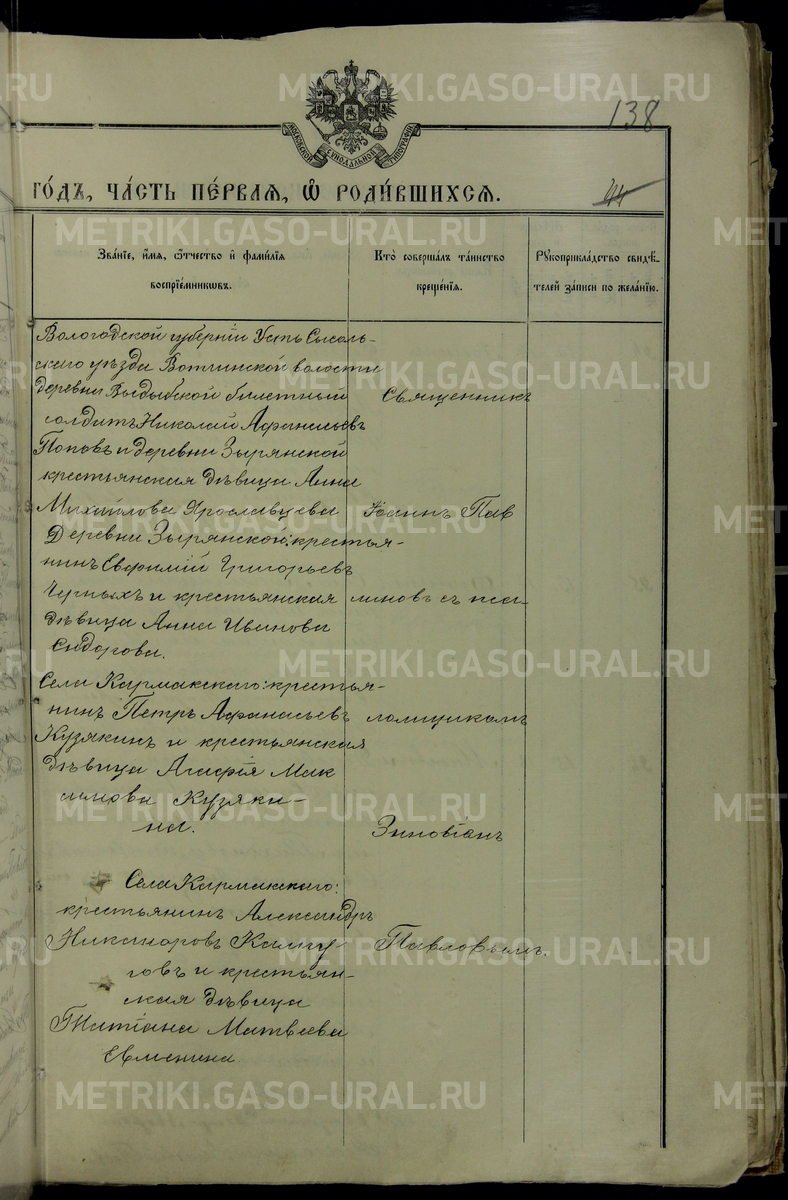 138
МОСКОВСКОЙ СѴНОДАЛЬНОЙ ТИПОГРАФІИ
ГО́ДЪ, ЧА́СТЬ ПЕ́РВАЯ, Ѿ РОДИ́ВШИХСЯ.
44
Зва́нїе, и́мя, ѻ́тчество и фами́лїя
воспрїе́мниковъ.
Кто̀ соверша́лъ та́инство
креще́нїя.
Рукоприкла́дство свидѣ́-
телей за́писи по жела́нїю.
Вологодской губерніи Усть Сысоль-
скаго уѣзда Вотчинской волости
деревни Выдыбской билетный
солдатъ Николай Афанасьевъ
Поповъ и деревни Зырянской
крестьянская дѣвица Анна
Михайлова Ярославцева
Деревни Зырянской: крестья-
нинъ Евфимій Григорьевъ
Черныхъ и крестьянская
дѣвица Анна Иванова
Сидорова.
Села Кармакскаго: крестья-
нинъ Петръ Афанасьевъ
Кузякинъ и крестьянская
дѣвица Агафія Мак
симова Кузяки-
на.
Села Кармакскаго:
крестьянинъ Александръ
Никаноровъ
говъ и крестьян-
ская дѣвица
Татіана Матвеева
Священникъ
Іоаннъ Пав
линовъ съ пса-
ломщикомъ
Зиновіемъ
Павловымъ.
METRIKI.GASO-URAL.RU